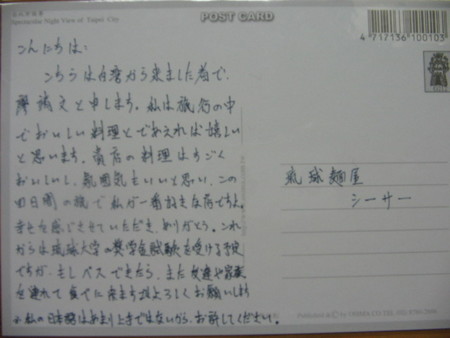 Spectacular Night View of Taipei City
POST CARD
4 717136 100103
こんにちは:
こちらは台湾から来ました者で、
廖 と申します。私は旅行の中
でおいしい料理とであえれば嬉しい
と思います。貴店の料理はすごく
おいしいし、雰囲気もいいと思い、この
四日間の旅で私が一番好きな店ですよ。
幸せを感じさせていただき、ありがとう。これ
からは琉球大学の奨学金試験を受ける予定
ですが、もしパスできたら、また友達や家族
を連れて食べに来ます
よろしくお願いします
※私の日本語はあまり上手ではないから、お許してください。
琉球麺屋
シーサー